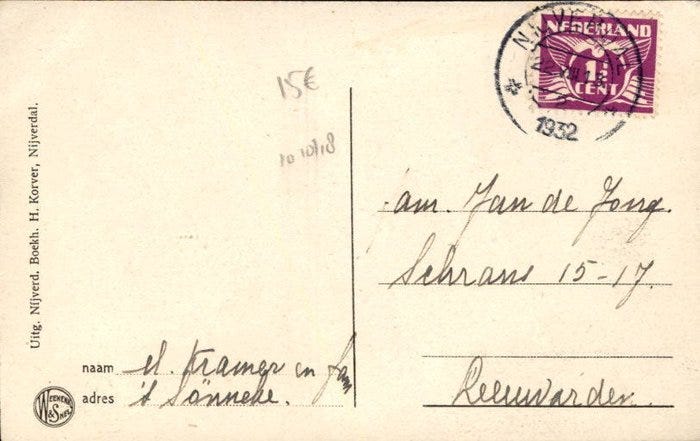 Uitg. Nijverd. Boekh. H. Korver, Nijverdal.
15€
10 10 18
NIJVERDAL
1932
NEDERLAND
1½
CENT
fam. Jan de Jong.
Schrans 15-17.
Leeuwarden.
naam M. Kramer en fam
adres 't Sönneke.
WEENENK & SNEL